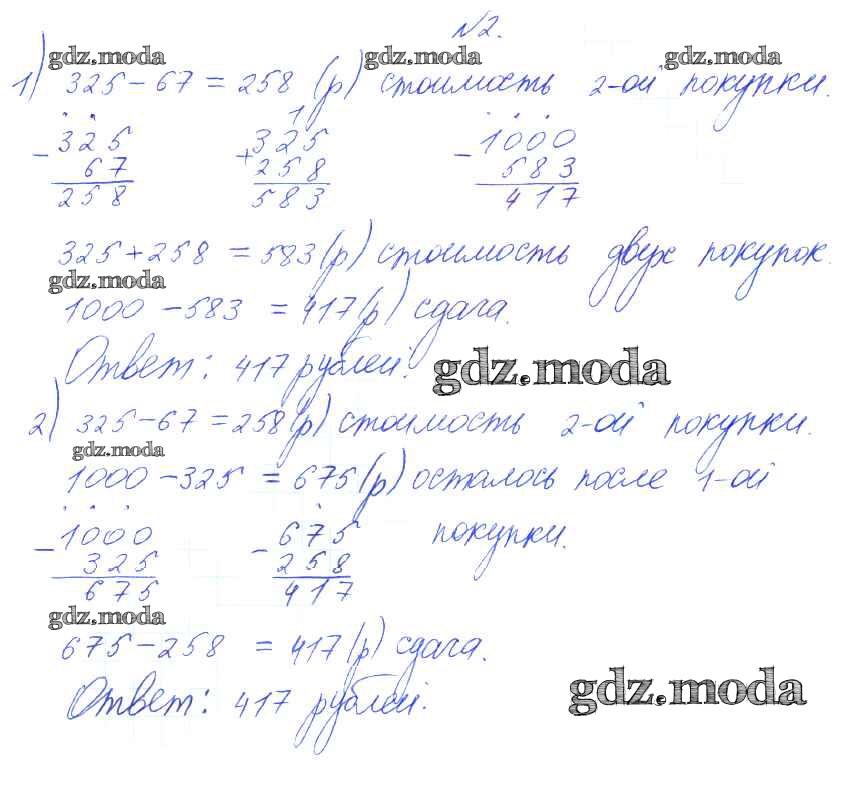 №2.
gdz.moda gdz.moda gdz.moda
1) 325 - 67 = 258 (р) стоимость 2-ой покупки.
- 325 + 325 - 1000
67 258 583
258 583 417
325 + 258 = 583 (р) стоимость двух покупок.
gdz.moda
1000 - 583 = 417 (р) сдача.
Ответ: 417 рублей. gdz.moda
2) 325 - 67 = 258 (р) стоимость 2-ой покупки.
gdz.moda
1000 - 325 = 675 (р) осталось после 1-ой
покупки.
- 1000 - 675
325 258
675 417
gdz.moda
675 - 258 = 417 (р) сдача.
gdz.moda
Ответ: 417 рублей.